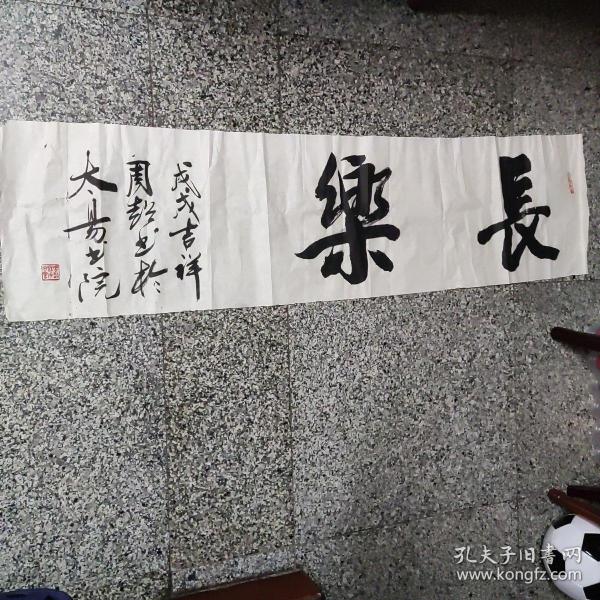 長樂
戊戌吉祥
周超书於
大易书院
孔夫子旧书网
www.kongfz.com